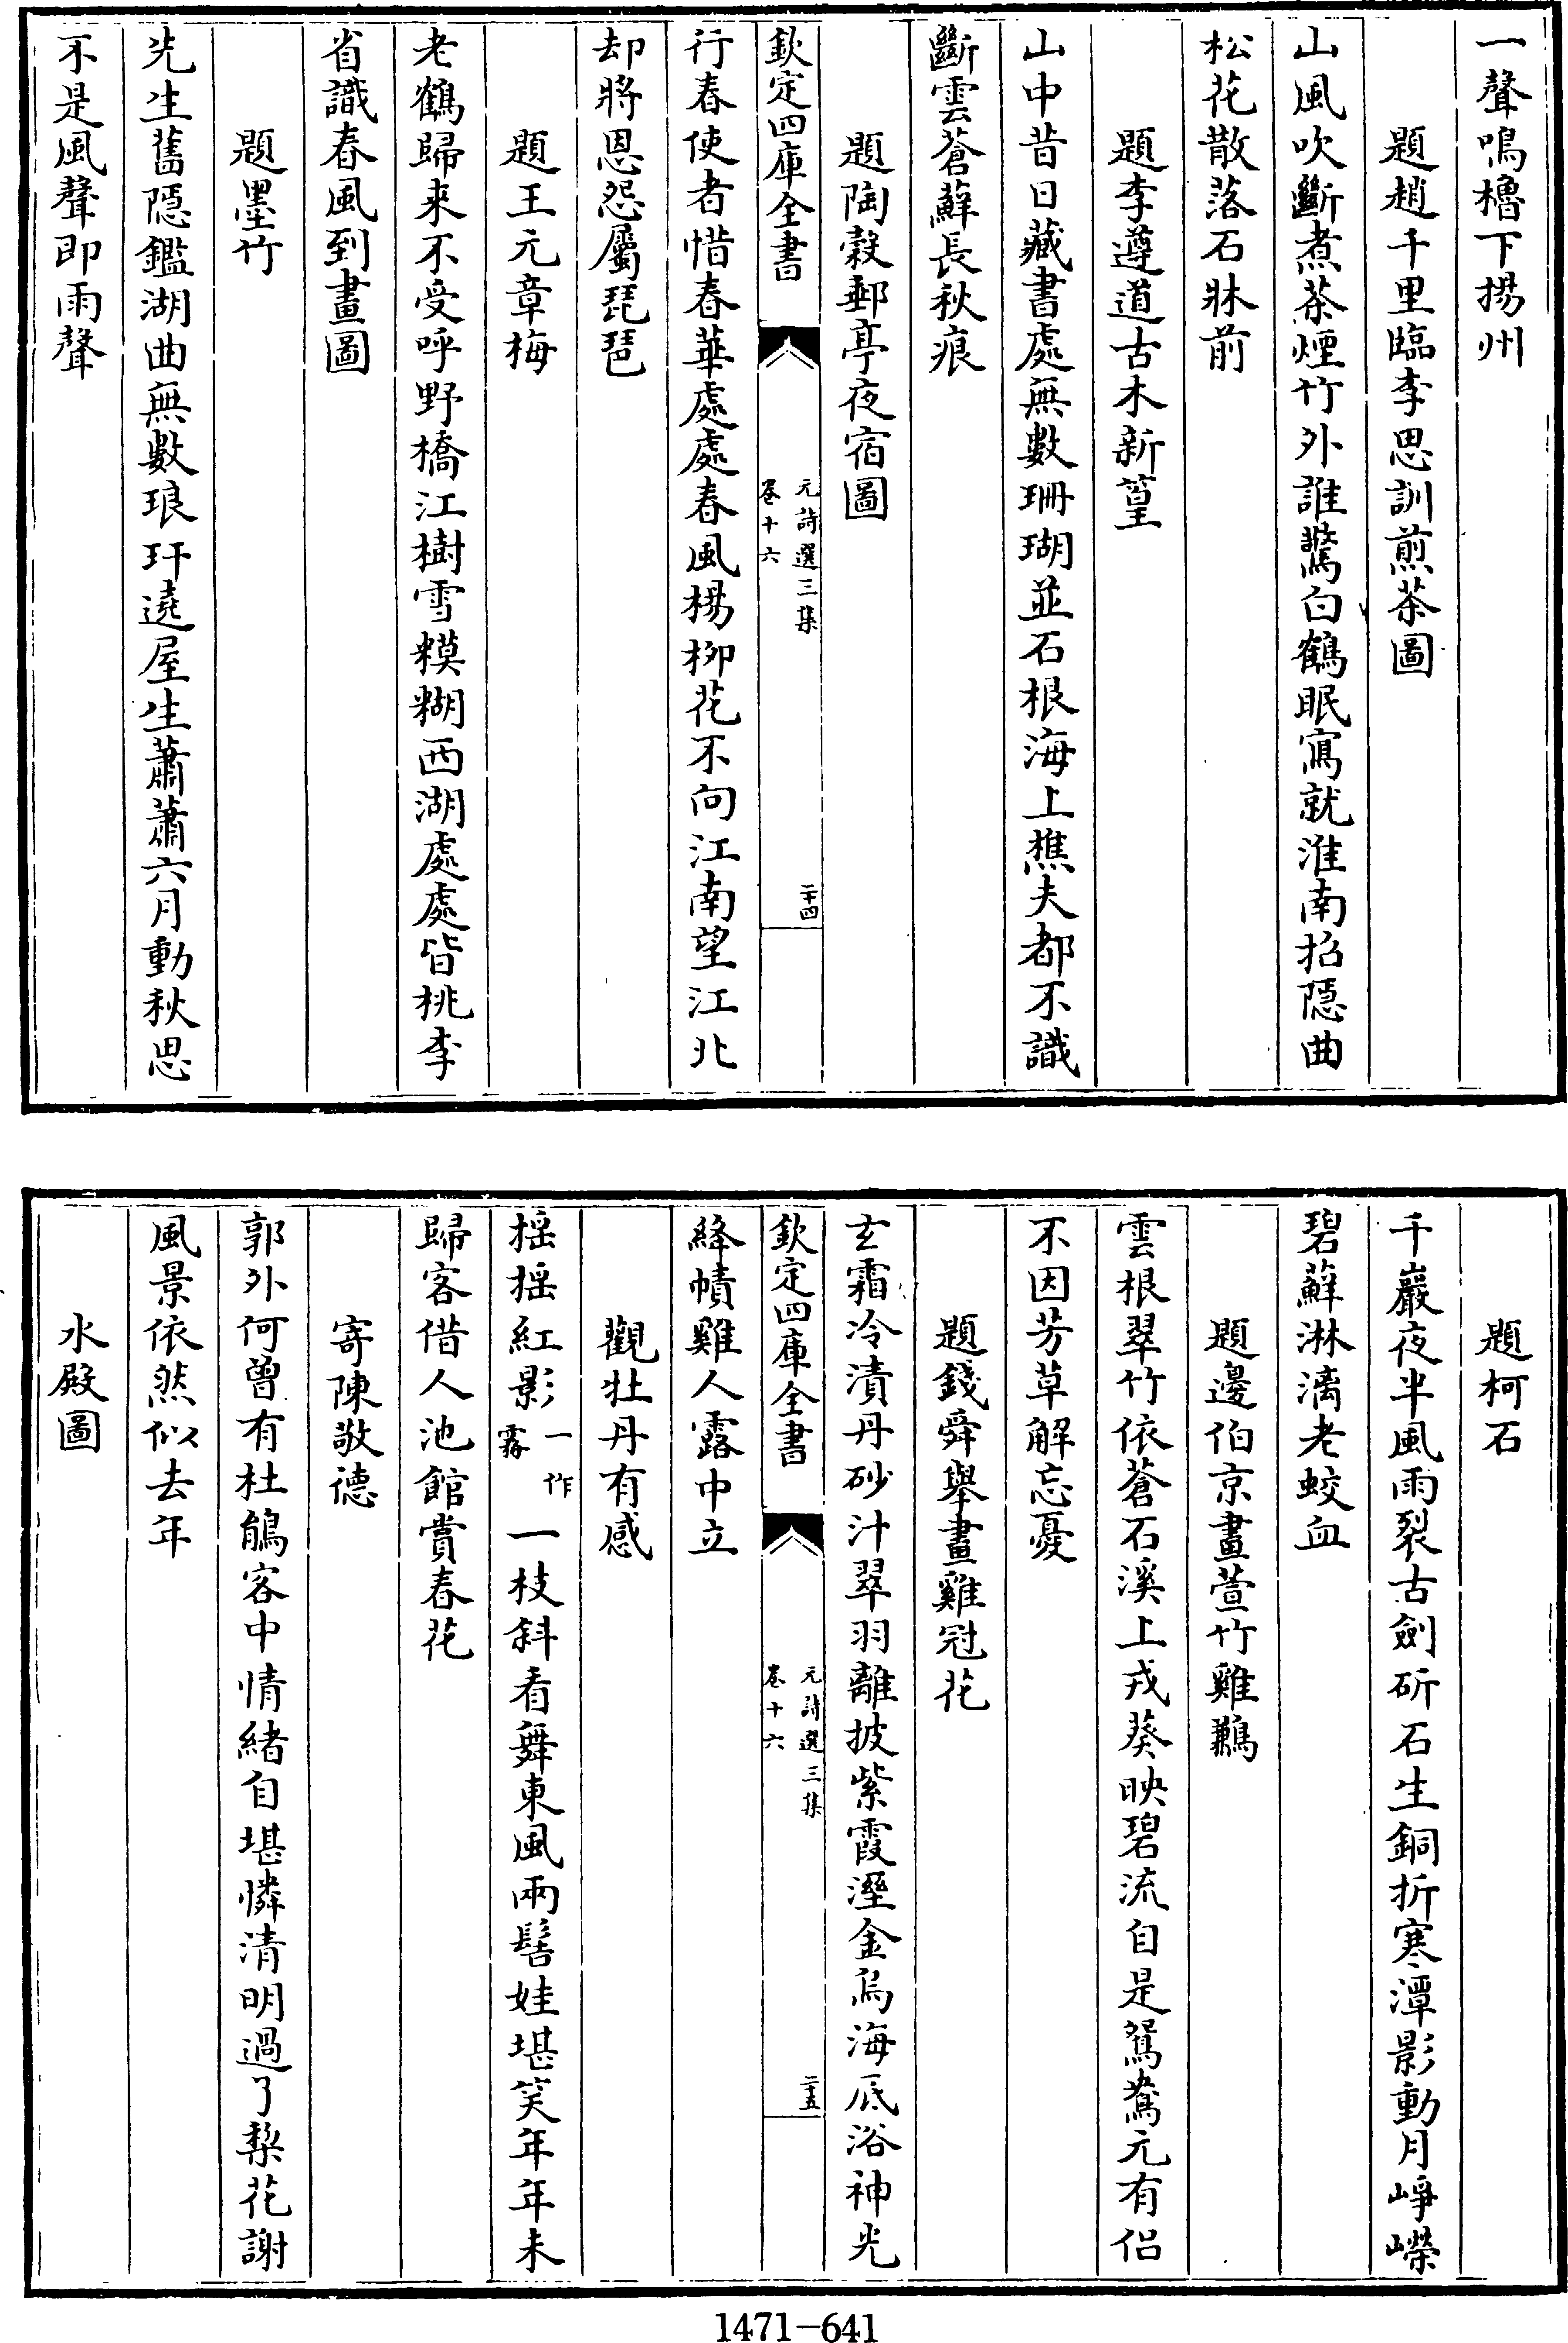 一聲鳴櫓下揚州
題趙千里臨李思訓煎茶圖
山風吹斷煮茶煙竹外誰驚白鶴眠寫就淮南招隱曲
松花散落石牀前
題李遵道古木新篁
山中昔日藏書處無數珊瑚並石根海上樵夫都不識
斷雲蒼蘚長秋痕
題陶穀郵亭夜宿圖
欽定四庫全書
元詩選三集
卷十六
二十四
行春使者惜春華處處春風楊柳花不向江南望江北
却將恩怨屬琵琶
題王元章梅
老鶴歸來不受呼野橋江樹雪糢糊西湖處處皆桃李
省識春風到畫圖
題墨竹
先生舊隱鑑湖曲無數琅玕遶屋生蕭蕭六月動秋思
不是風聲即雨聲
題柯石
千巖夜半風雨裂古劍斫石生銅折寒潭影動月崢嶸
碧蘚淋漓老蛟血
題邊伯京畫萱竹雞鶒
雲根翠竹依蒼石溪上戎葵映碧流自是鴛鴦元有侶
不因芳草解忘憂
題錢舜舉畫雞冠花
玄霜冷漬丹砂汁翠羽離披紫霞溼金烏海底浴神光
絳幘雞人露中立
欽定四庫全書
元詩選三集
卷十六
二十五
觀牡丹有感
搖搖紅影一作霧一枝斜看舞東風兩髻娃堪笑年年未
歸客借人池館賞春花
寄陳敬德
郭外何曾有杜鵑客中情緒自堪憐清明過了梨花謝
風景依然似去年
水殿圖
1471-641